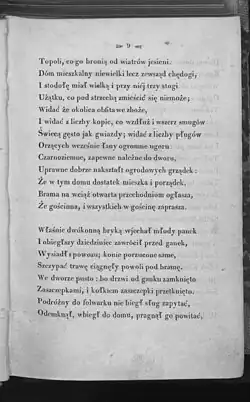 9
Topoli, co go bronią od wiatrów jesieni.
Dóm mieszkalny niewielki lecz zewsząd chędogi,
I stodołę miał wielką i przy niéj trzy stogi
Użątku, co pod strzechą zmieścić się niemoże;
Widać że okolica obfita we zboże,
I widać z liczby kopic, co wzdłuż i wszerz smugów
Świecą gęsto jak gwiazdy; widać z liczby pługów
Orzących wcześnie łany ogromne ugoru
Czarnoziemne, zapewne należne do dworu,
Uprawne dobrze nakształt ogrodowych grządek:
Że w tym domu dostatek mieszka i porządek.
Brama na wciąż otwarta przechodniom ogłasza,
Że gościnna, i wszystkich w gościnę zaprasza.
Właśnie dwókonną bryką wjechał młody panek
I obiegłszy dziedziniec zawrócił przed ganek,
Wysiadł z powozu; konie porzucone same,
Szczypać trawę ciągnęły powoli pod bramę.
We dworze pusto: bo drzwi od ganku zamknięto
Zaszczepkami, i kołkiem zaszczepki przetknięto.
Podróżny do folwarku nie biegł sług zapytać,
Odemknął, wbiegł do domu, pragnął go powitać,